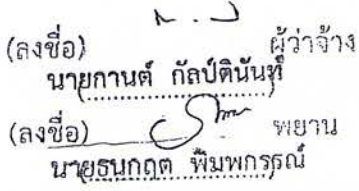 (ลงชื่อ) ผู้ว่าจ้าง
นายกานต์ กัลป์ตินันท์
(ลงชื่อ) พยาน
นายธนกฤต พิมพกรรณ์